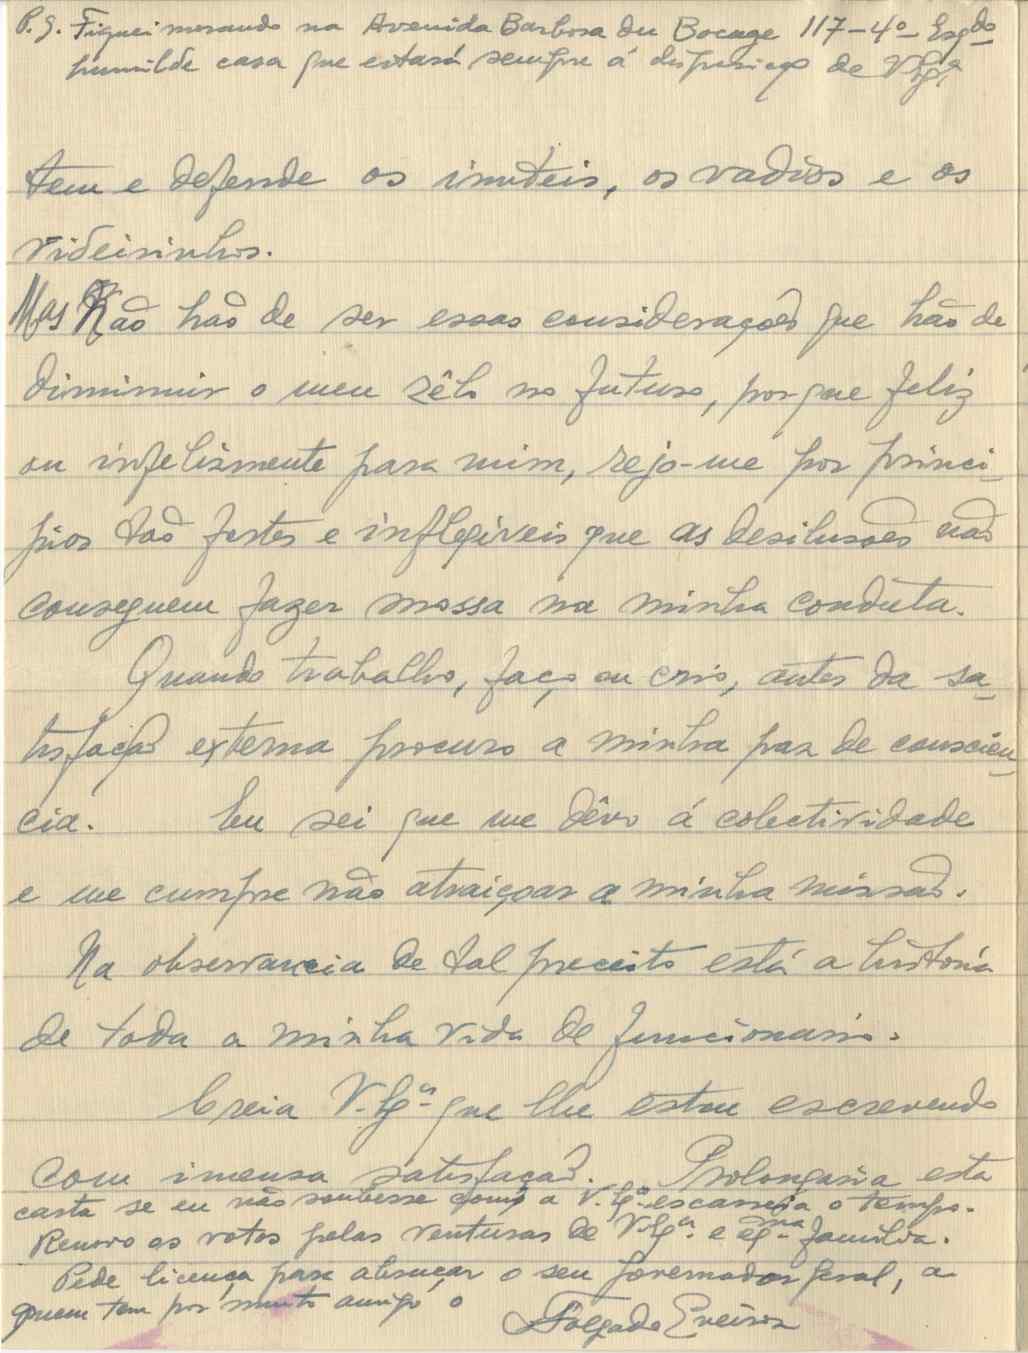 P.S. Fiquei morando na Avenida Barbosa du Bocage 117-4º Esqdo
humilde casa que estará sempre á disposição de V. Exª
tem e defende os inuteis, os vadios e os
videirinhos.
Mas Não hão de ser essas considerações que hão de
diminuir o meu zêlo no futuro, porque feliz
ou infelismente para mim, rejo-me por princi-
pios tão fortes e inflegiveis que as desilusões não
conseguem fazer mossa na minha conduta.
Quando trabalho, faço ou crio, antes da sa-
tisfação externa procuro a minha paz de conscien-
cia. Eu sei que me dêvo á colectividade
e me cumpre não atraiçoar a minha missão.
Na observancia de tal preceito está a história
de toda a minha vida de funcionario.
Creia V. Exª que lhe estou escrevendo
com imensa satisfação. Prolongaria esta
carta se eu não soubesse como a V. Exª escasseia o tempo.
Renovo os votos pelas venturas de V. Exª e Exma família.
Pede licença para abraçar o seu governador geral, a
quem tem por muito amigo o